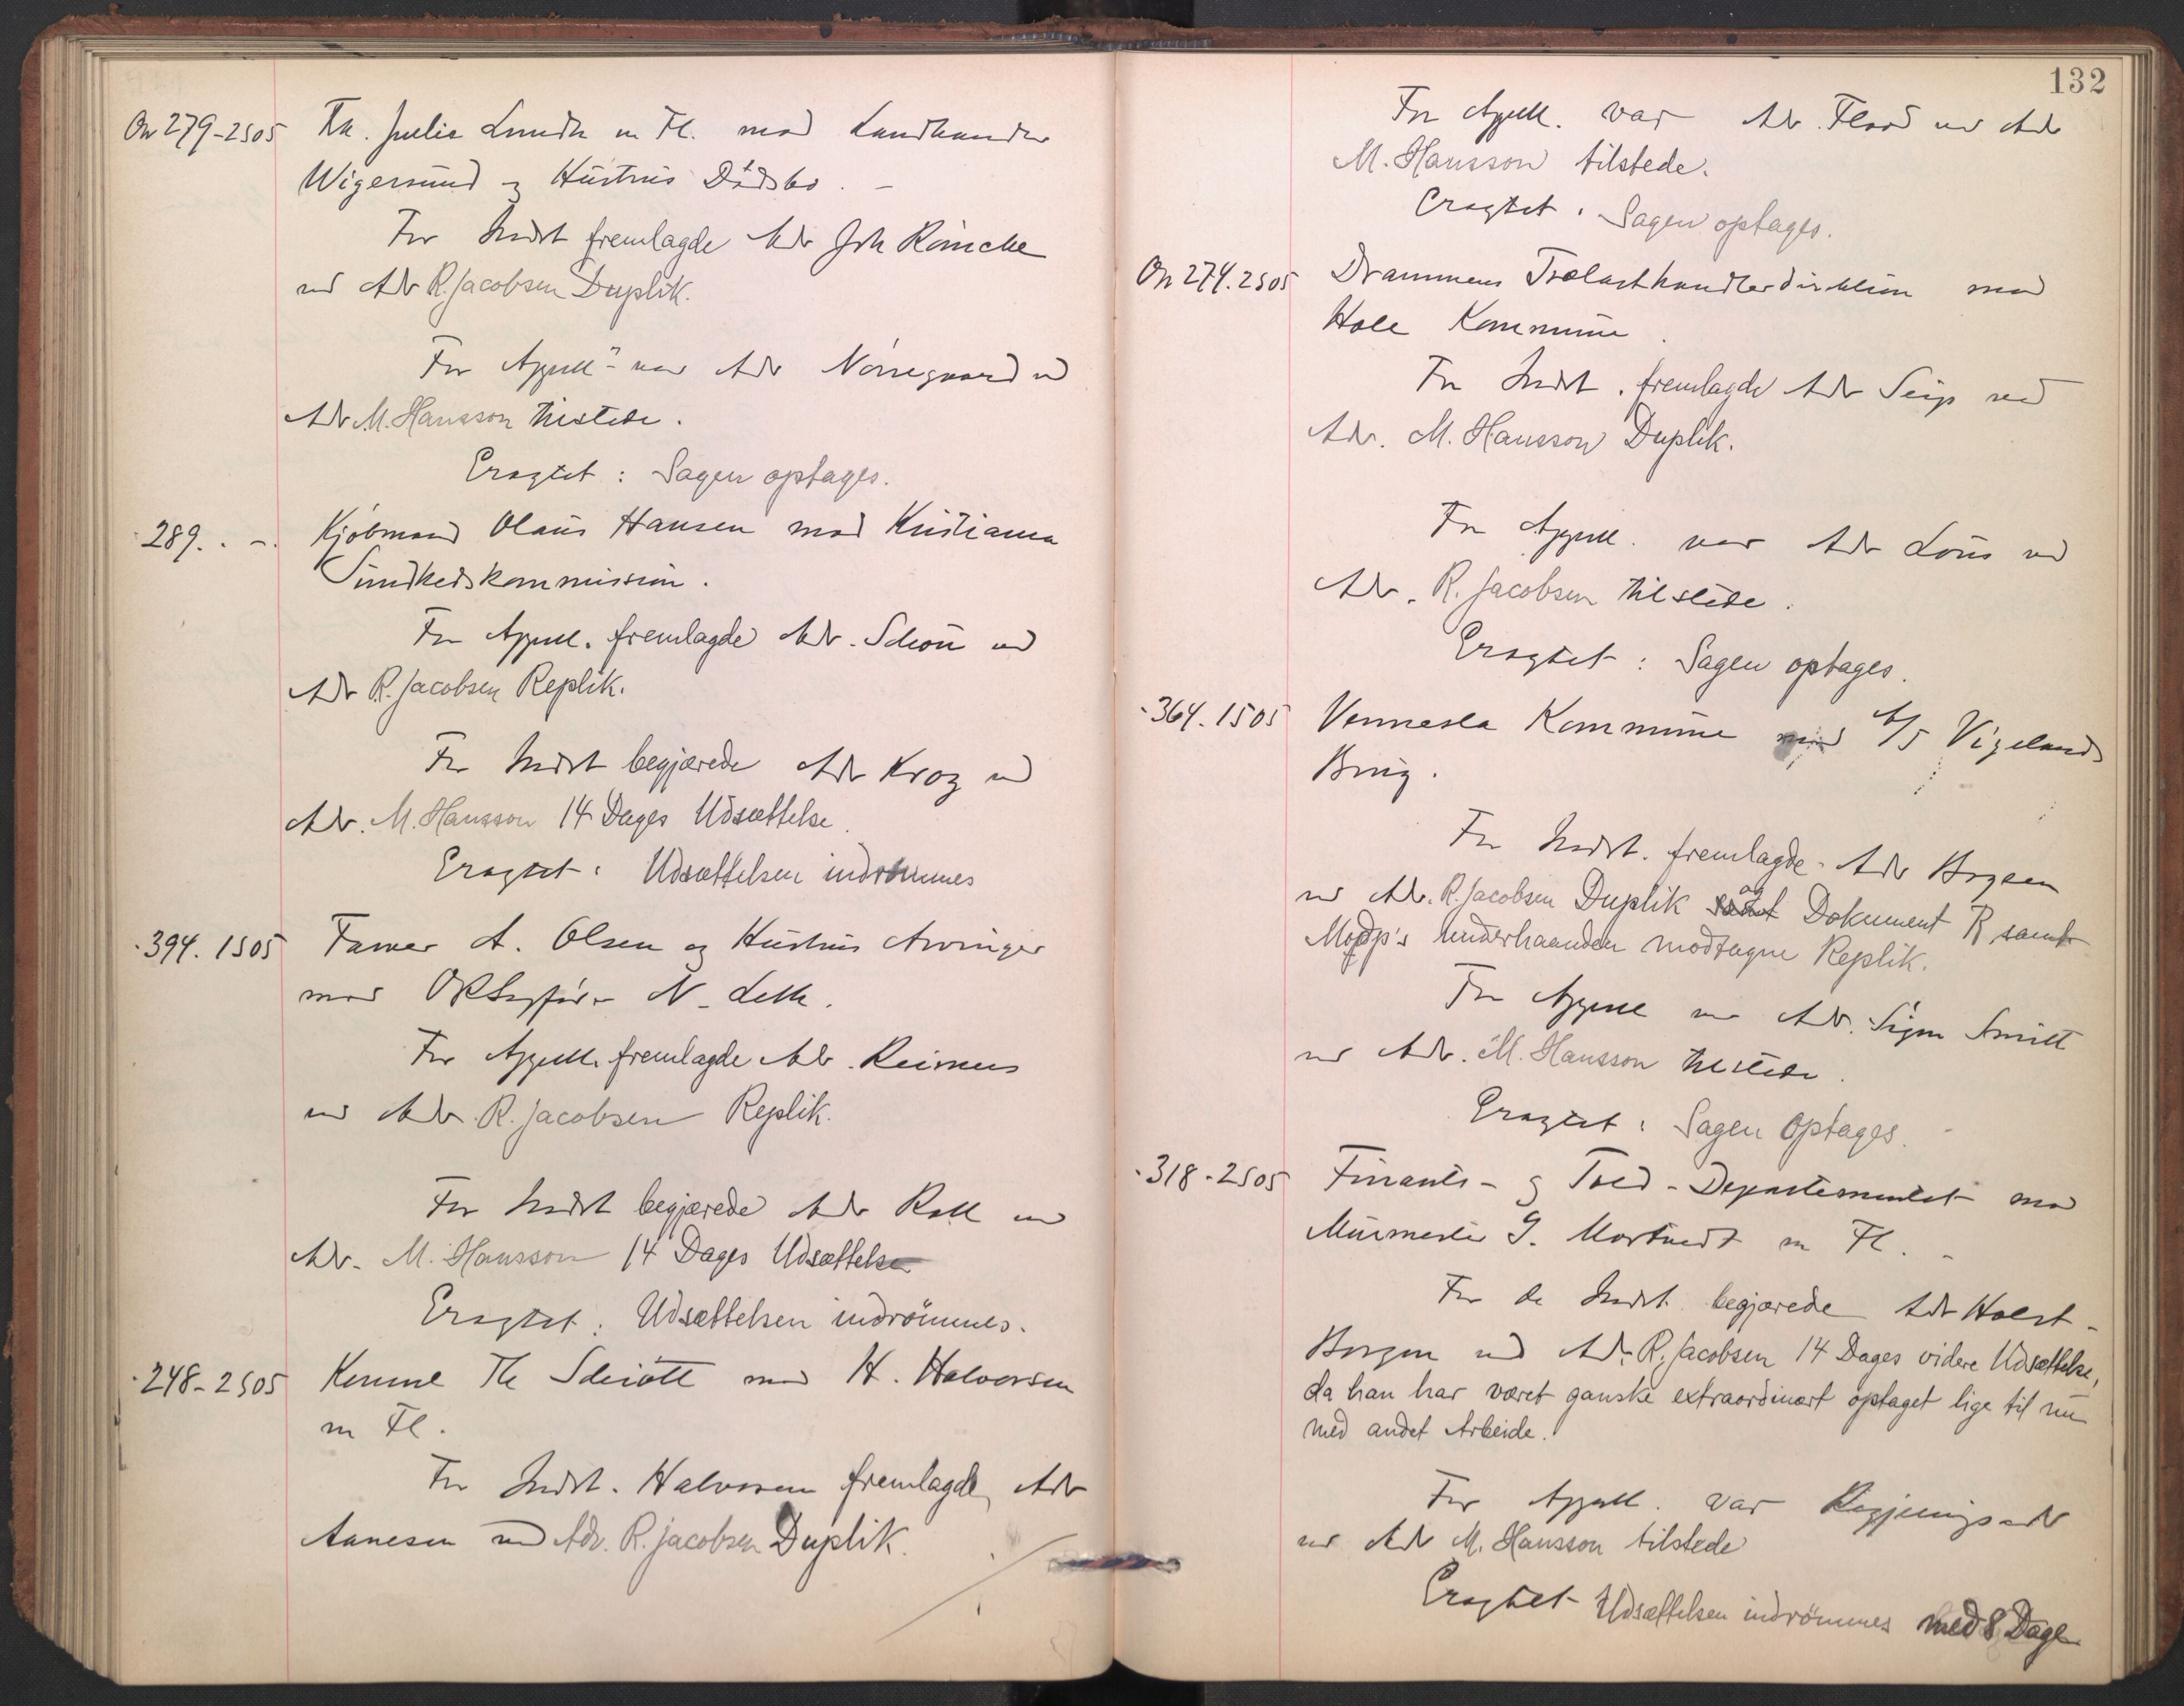 On 279-2505 Frk. Julie Lundh m Fl. mod Landhandler
Wigersund og Hustrus Dødsbo. -
For Indst fremlagde Adv Joh Röncke
ved Adv R. Jacobsen Duplik.
For Appell. var Adv Nörregaard ved
Adv M. Hansson tilstede.
Eragtet: Sagen optages.
289. . -. Kjöbmand Olaus Hansen mod Kristiania
Sundhedskommission.
For Appell. fremlagde Adv. Schou ved
Adv R. Jacobsen Replik.
For Indst begjærede Adv Krog ved
Adv. M. Hansson 14 Dages Udsættelse.
Eragtet: Udsættelsen indrömmes
394. 1505 Farver A. Olsen og Hustrus Arvinger
mod ORSagfører N. Leth.
For Appell. fremlagde Adv. Reimers
ved Adv. R. Jacobsen Replik.
For Indst begjærede Adv Roll ved
Adv. M. Hansson 14 Dages Udsættelse
Eragtet: Udsættelsen indrömmes.
248-2505 Th Schiött mod H. Halvorsen
m Fl.
For Indst. Halvorsen fremlagde Adv
Aanesen ved Adv. R. Jacobsen Duplik.
132
For Appell. var Adv. Flood ved Adv
M. Hansson tilstede.
Eragtet: Sagen optages.
On 274. 2505 Drammens Trælasthandlerdirektion mod
Hole Kommune.
For Indst. fremlagde Adv Seip ved
Adv. M. Hansson Duplik.
For Appell. var Adv Lous ved
Adv. R. Jacobsen tilstede.
Eragtet: Sagen optages.
364. 1505 Vennesla Kommune mod A/S Vigelands
Brug.
For Indst. fremlagde Adv
ved Adv. R. Jacobsen Duplik og Dokument R samt
Modp's underhaanden modtagne Replik.
For Appell var Adv. Sigm Smitt
ved Adv. M. Hansson tilstede.
Eragtet: Sagen optages.
318-2505 Finants- og Told-Departementet mod
Murmester G. Mortvedt m Fl. -
For de Indst. begjærede Adv Holst-
Borgen ved Adv. R. Jacobsen 14 Dages videre Udsættelse,
da han har været ganske extraordinært optaget lige til nu
med andet Arbeide.
For Appell. var Regjeringsadv
ved Adv M. Hansson tilstede
Eragtet Udsættelsen indrömmes med 8 Dage